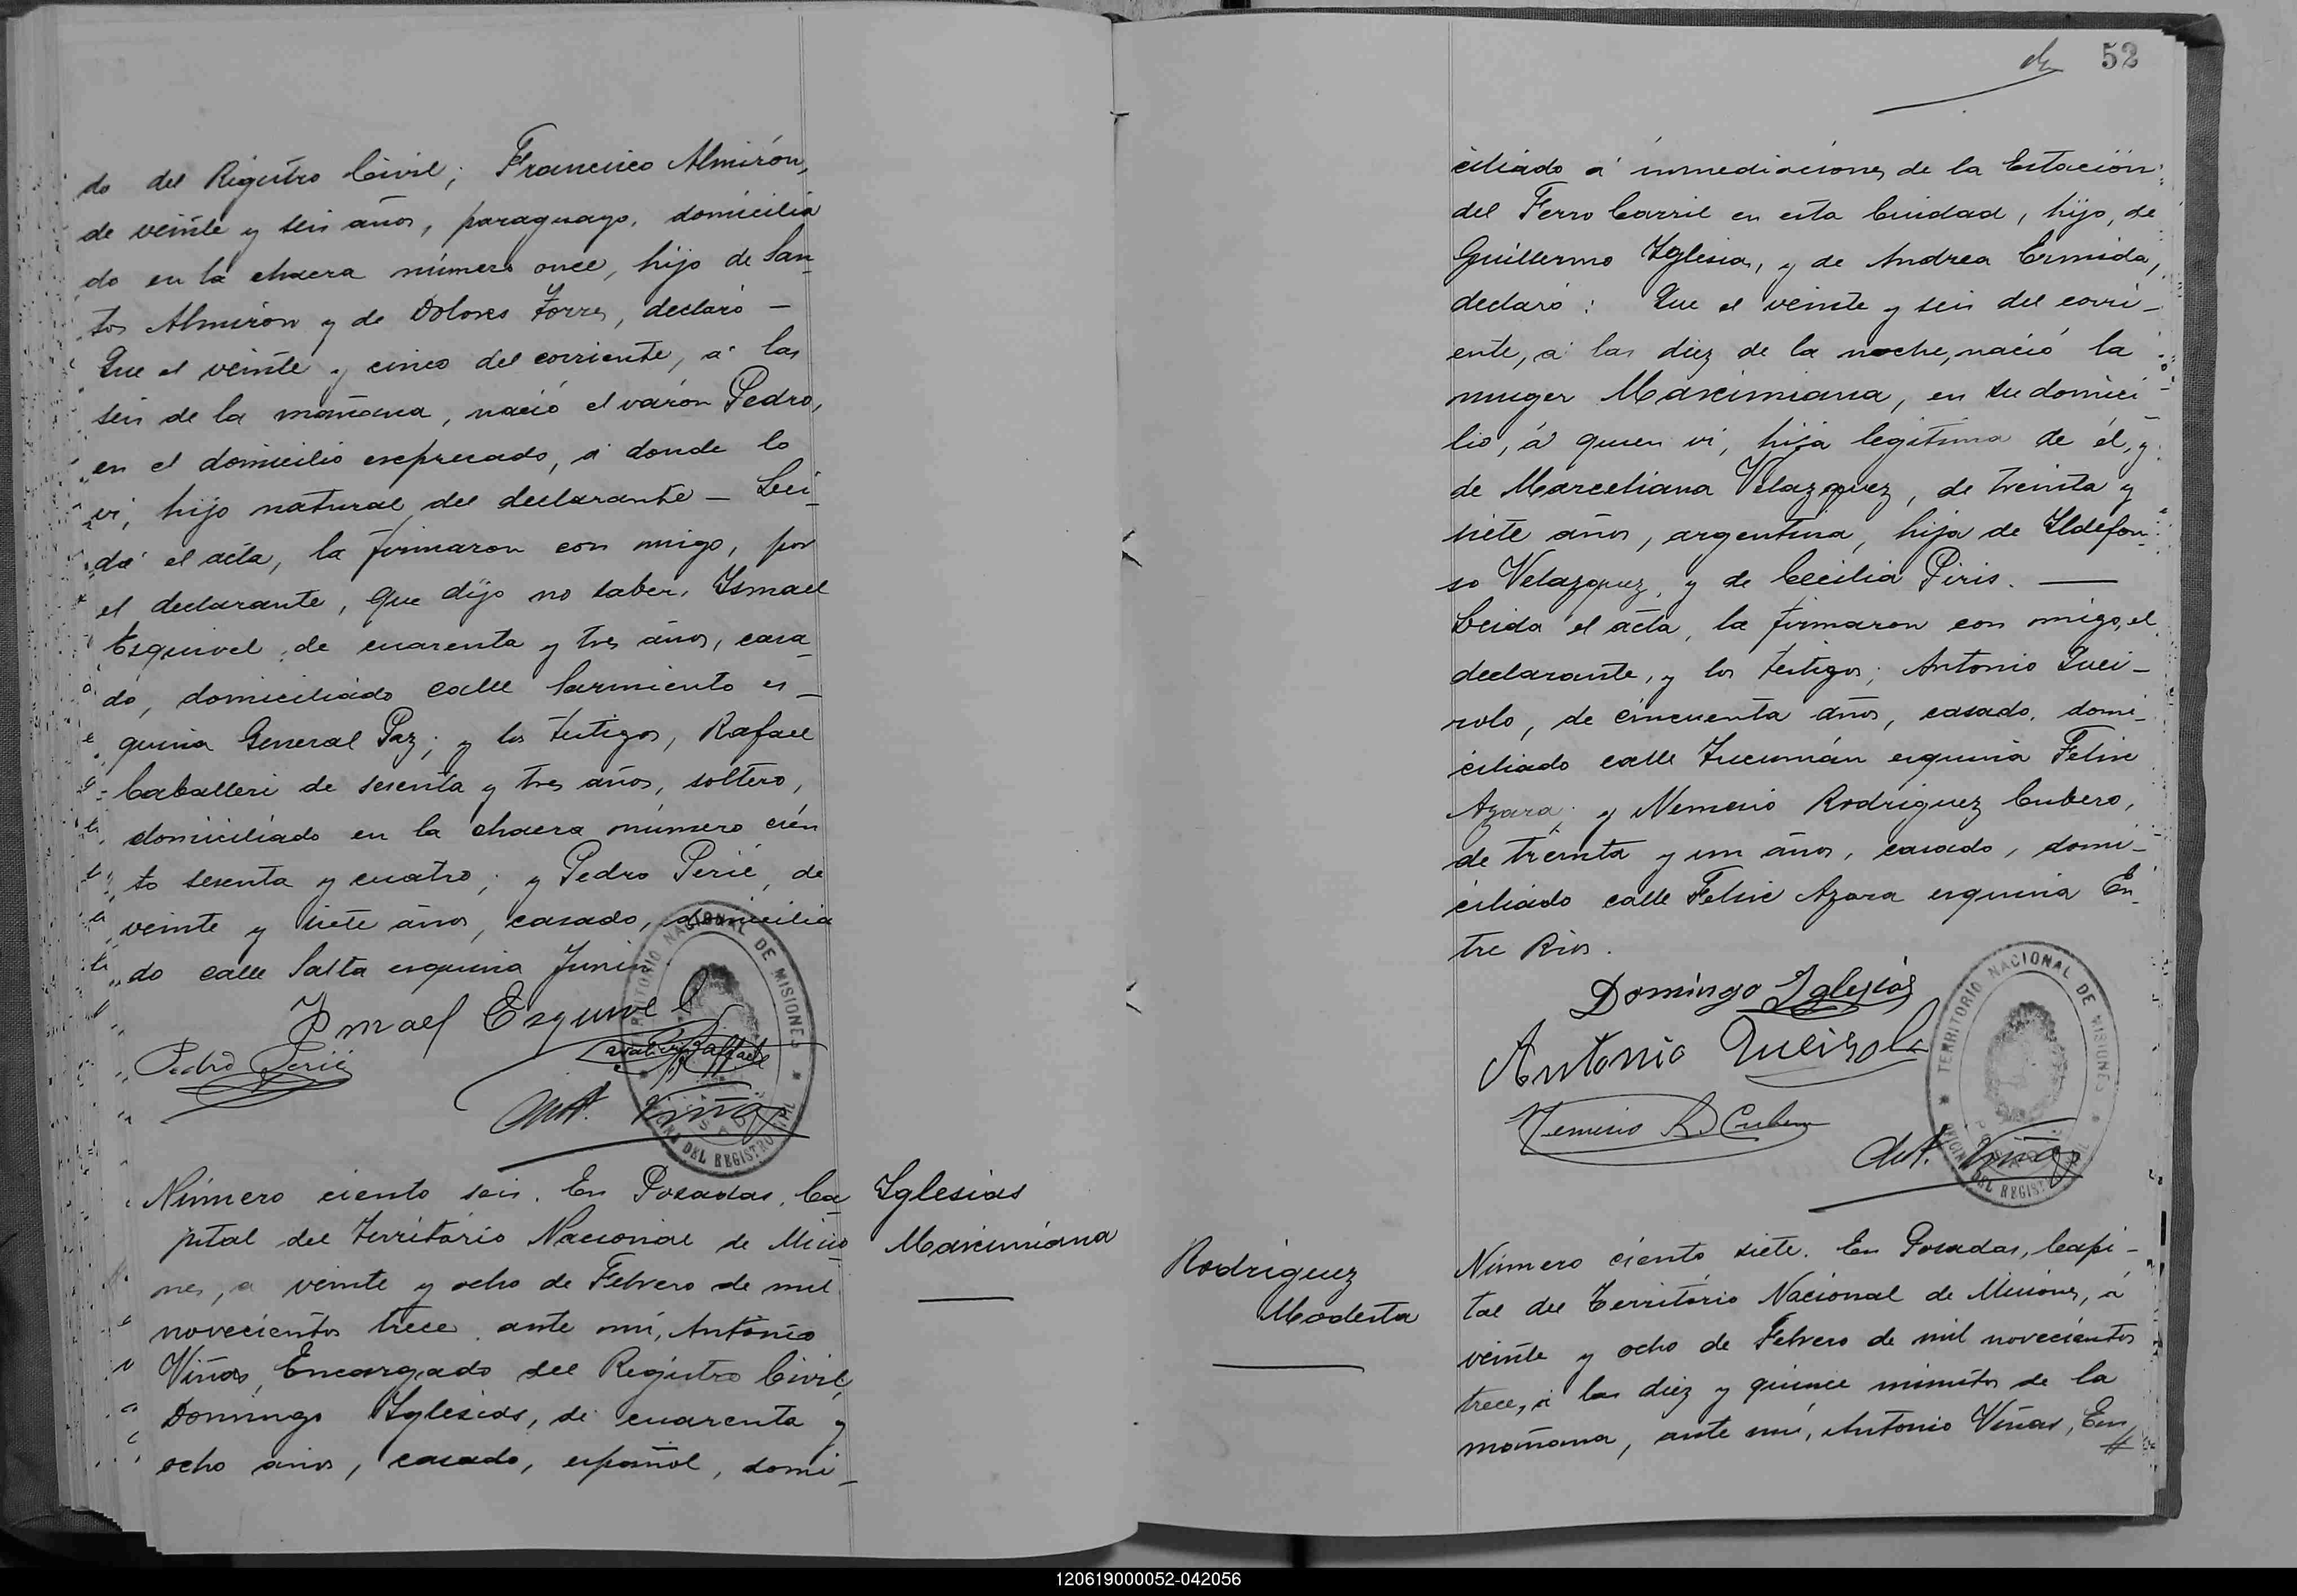 do del Registro Civil; Francisco Almirón,
de veinte y seis años, paraguayo, domicilia
do en la chacra número once, hijo de San-
tos Almirón y de Dolores Torres, declaró —
Que el veinte y cinco del corriente, á las
seis de la mañana, nació el varón Pedro,
en el domicilio expresado, á donde lo
vi, hijo natural del declarante — Leí-
da el acta, la firmaron con migo, por
el declarante, que dijo no saber, Ismael
Esquivel, de cuarenta y tres años, casa-
do, domiciliado calle Sarmiento es-
quina General Paz; y los testigos, Rafael
Caballeri de sesenta y tres años, soltero,
domiciliado en la chacra número cien
to sesenta y cuatro; y Pedro Perié, de
veinte y siete años, casado, domicilia
do calle Salta esquina Junin
Ismael Esquivel
Pedro Perié
Cavalieri Raffaele
Ant. Viñas
TERRITORIO NACIONAL DE MISIONES
OFICINA DEL REGISTRO CIVIL
Número ciento seis. En Posadas, Ca
pital del Territorio Nacional de Misio
nes, a veinte y ocho de Febrero de mil
novecientos trece, ante mí, Antonio
Viñas, Encargado del Registro Civil,
Domingo Yglesias, de cuarenta y
ocho años, casado, español, domi-
Yglesias
Marcimiana
52
ciliado á inmediaciones de la Estación
del Ferro Carril en esta Ciudad, hijo, de
Guillermo Yglesia, y de Andrea Ermida,
declaró: Que el veinte y seis del corri-
ente, á las diez de la noche, nació la
muger Marcimiana, en su domici
lio, á quien vi, hija legítima de él, y
de Marceliana Velazquez, de treinta y
siete años, argentina, hija de Yldefon-
so Velazquez, y de Cecilia Piris. —
Leida el acta, la firmaron con migo, el
declarante, y los testigos; Antonio Quei-
rolo, de cincuenta años, casado, domi-
ciliado calle Tucumán esquina Felix
Azara; y Nemesio Rodriguez Cubero,
de treinta y un años, casado, domi-
ciliado calle Felix Azara esquina En-
tre Rios.
Domingo Yglesias
Antonio Queirolo
Nemesio R. Cubero
Ant. Viñas
TERRITORIO NACIONAL DE MISIONES
OFICINA DEL REGISTRO CIVIL
Rodriguez
Modesta
Número ciento siete. En Posadas, Capi-
tal del Territorio Nacional de Misiones, á
veinte y ocho de Febrero de mil novecientos
trece, á las diez y quince minutos de la
mañana, ante mí, Antonio Viñas, En
120619000052-042056